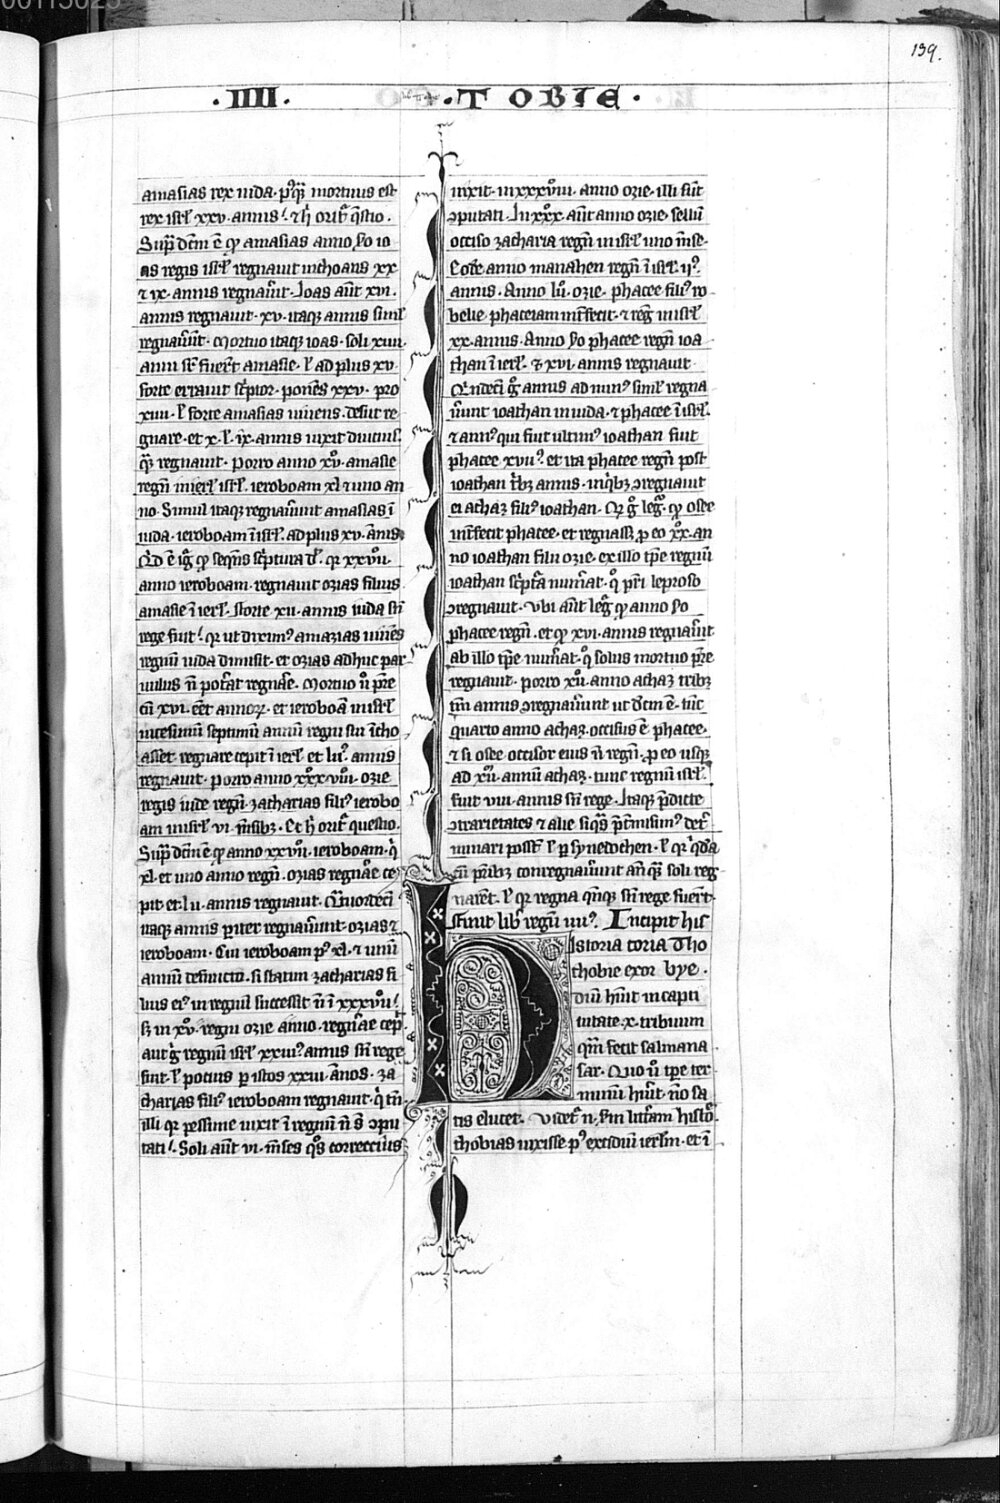 139.
.IIII. .TOBIE.
amasias rex iuda. pꝰqͣ mortuus est
rex isrł xxv. annis. ⁊ h̄ orit᷑ q̄stio.
Supͣ dcm̄ ē ꝙ amasias anno ẜo io
as regis isrł regnauit inchoans xx
⁊ ix. annis regnauit. Joas aūt xvi.
annis regnauit. xv. itaqꝫ annis simł
regnauer̄t. Mortuo itaqꝫ ioas. soli xiiii.
anni sr̄ fuer̄t amasie. ł ad plus xv.
forte errauit sc̄ptor. ponēs xxv. pro
xiiii. ł forte amasias uiuens. desiit re
gnare. et x. ł. ix. annis uixit diutius.
qͣ regnauit. Porro anno xv̊. amasie
regn̄ in ierł isrł. ieroboam xl ⁊ uno an
no. Simul itaqꝫ regnauer̄t amasias ī
iuda. ieroboam ī isrł. ad plus xv. annis
Qd ē iḡ ꝙ seqn̄s sc̄ptura dr̄. qꝛ xxvii̊.
anno ieroboam. regnauit ozias filius
amasie ī ierł. Forte xii. annis iuda sn̄
rege fuit. qꝛ ut diximꝰ amazias uiuēs
regnū iuda dimisit. et ozias adhuc par
uulus n̄ potͣat regnāe. Mortuo ū pr̄e
cū xvi. eēt annoꝝ. et ieroboā in isrł
uicesimū septimū annū regni sui īcho
asset. regnare cepit ī ierł. et lii. annis
regnauit. Porro anno xxxviii̊. ozie
regis iude regn̄. zacharias filiꝰ ierobo
am in isrł vi. m̄sibꝫ. Et h̄ orit᷑ questio.
Supͣ dcm̄ ē ꝙ anno xxvii̊. ieroboam. q̇
xl. et uno anno regn̄. ozias regnāe ce
pit. et lii. annis regnauit. Quatuordecī
itaqꝫ annis pariter regnauer̄t. ozias ⁊
ieroboam. Cui ieroboam pꝰ xl. ⁊ unū
annū defuncto. si statim zacharias fi
lius eiꝰ in regnū successit n̄ ī xxxviii̊.
sꝫ in xv̊. regni ozie anno. regnāe cep̄.
aut ḡ regnū isrł xxiii. annis sn̄ rege
fuit. ł potius ꝑ istos xxiii. annos. za
charias filiꝰ ieroboam regnauit. q̇ tn̄
illi qꝛ pessime uixit ī regnū n̄ st̄ ↄpu
tati. Soli aūt vi. m̄ses qͦs correctius
uixit. in xxxviii̊. anno ozie. illi sūt
ↄputati. In xxx̊. aūt anno ozie. sellū
occiso zacharia regn̄ in isrł uno m̄se.
Eodē anno manahen regn̄ ī isrł. iiꝰ.
annis. Anno lii̊. ozie. phacee filiꝰ ro
belie. phaceiam int̄fecit. ⁊ regn̄ in isrł
xx. annis. Anno ẜo phacee regn̄ ioa
than ī ierł. ⁊ xvi. annis regnauit.
Quīdecī ḡ annis ad minꝰ simł regna
uer̄unt ioathan in iuda. ⁊ phacee ī isrł.
⁊ annꝰ qui fuit ultimꝰ ioathan fuit
phacee xvii. et ita phacee regn̄ post
ioathan tͥbꝫ annis. in qͥbꝫ ↄregnauit
ei achaz filiꝰ ioathan. Qꝛ ḡ legit᷑. ꝙ osee
int̄fecit phacee. et regnass̄ ꝑ eo xx̊. an
no ioathan filii ozie. ex illo tp̄e regnū
ioathan sc̄ptͣa num̄at. qͦ pr̄i leproso
ↄregnauit. Vbi aūt legit᷑ ꝙ anno ẜo
phacee regn̄. et ꝙ xvi. annis regnauit
ab illo tp̄e num̄at. qͦ solus mortuo pr̄e
regnauit. Porro xii̊. anno achaz tribꝫ
tm̄ annis ↄregnauer̄unt ut dcm̄ ē. tūc
quarto anno achaz. occisus ē phacee.
⁊ si osee. occisor eius n̄ regn̄. ꝑ eo usqꝫ
ad xii. annū achaz. tunc regnū isrł.
fuit viii. annis sn̄ rege. Itaqꝫ p̄dicte
ↄtrarietates ⁊ alie siqͣs p̄t̄misimꝰ det̄
minari poss̄t ł ꝑ synedochen. ł qꝛ qͥdā
cū pͣribꝫ conregnauer̄unt anteqͣ soli reg
narēt. ł qꝛ regna qn̄qꝫ sn̄ rege fuer̄t.
Finit lib̄ regū iiii. Incipit his
istoria toria Tho
thobie exor bye.
diū hūit in capti
uitate. x. tribuum
qm̄ fecit salmana
sar. Quo ū tp̄e ter
minū hūit. nō sa
tis elucet. Videt᷑ n̄. scḋm litt̄am histoͬ.
thobias uixisse pꝰ excidiū ierłm. et ī